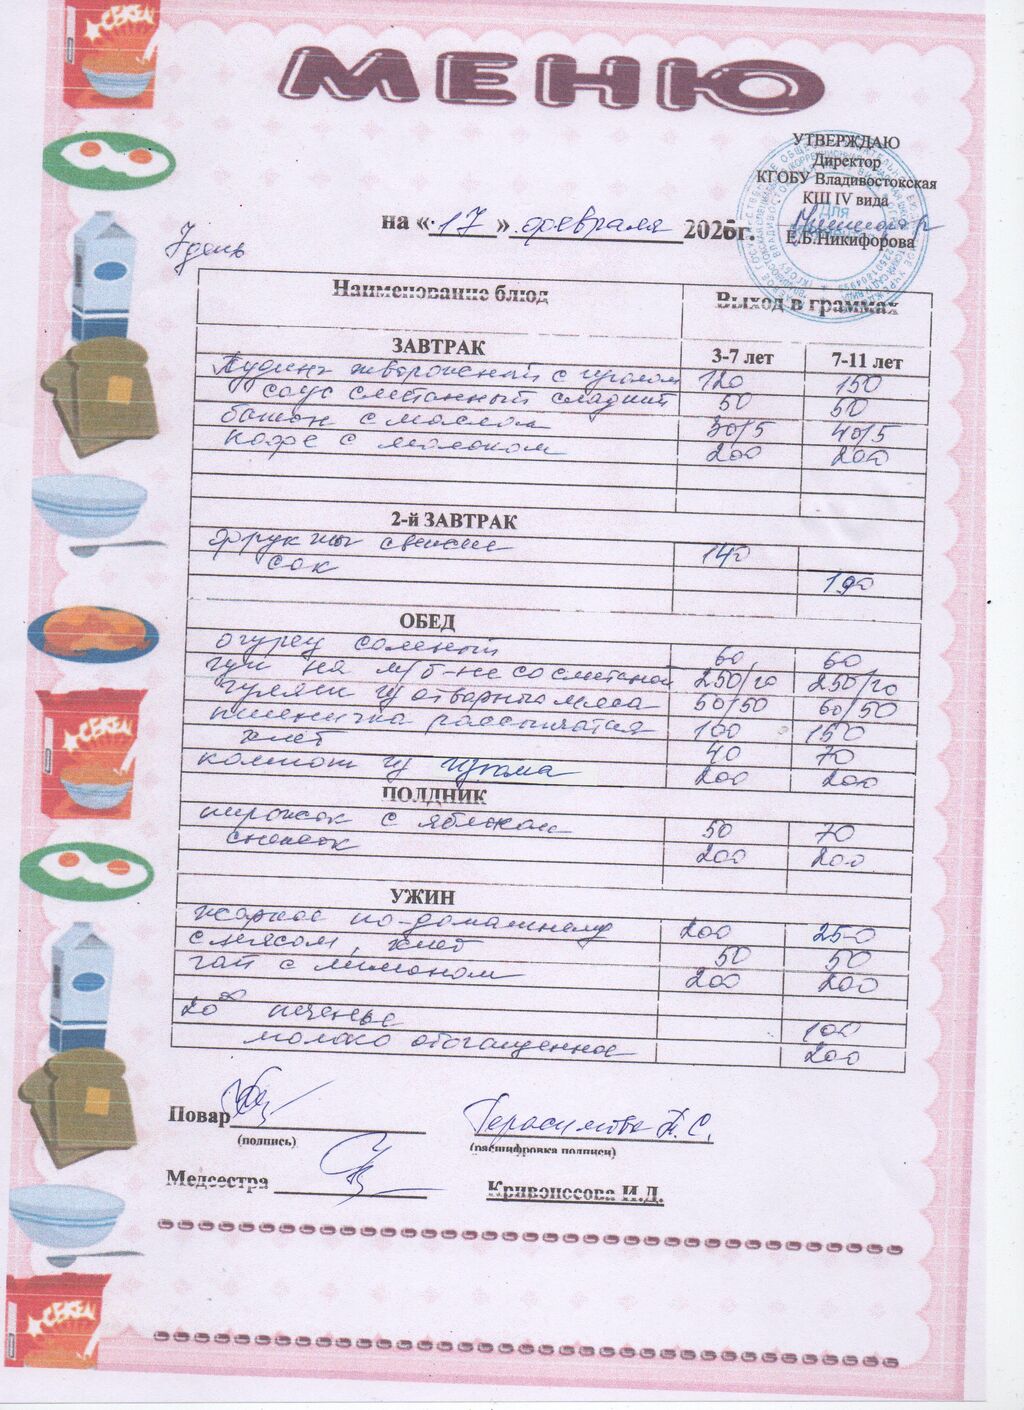 МЕНЮ
УТВЕРЖДАЮ
Директор
КГОБУ Владивостокская
КШ IV вида
Е.Б.Никифорова
на « 17 » февраля 2026г.
7 день
Наименование блюд Выход в граммах
ЗАВТРАК 3-7 лет 7-11 лет
Пудинг творожный с изюмом 120 150
соус сметанный сладкий 50 50
батон с маслом 30/5 40/5
Кофе с молоком 200 200
2-й ЗАВТРАК
Фрукты свежие 140
сок 190
ОБЕД
огурец соленый 60 60
щи на м/б-не со сметаной 250/10 250/10
гуляш из отварного мяса 50/50 60/50
пшеничка рассыпчатая 100 150
хлеб 40 70
компот из изюма 200 200
ПОЛДНИК
пирожок с яблоком 50 70
снежок 200 200
УЖИН
жаркое по-домашнему 200 250
с мясом, хлеб 50 50
чай с лимоном 200 200
20⁰⁰ печенье 100
молоко обогащенное 200
Повар Герасимова Т.С.
(подпись) (расшифровка подписи)
Медсестра Кривоносова И.Д.